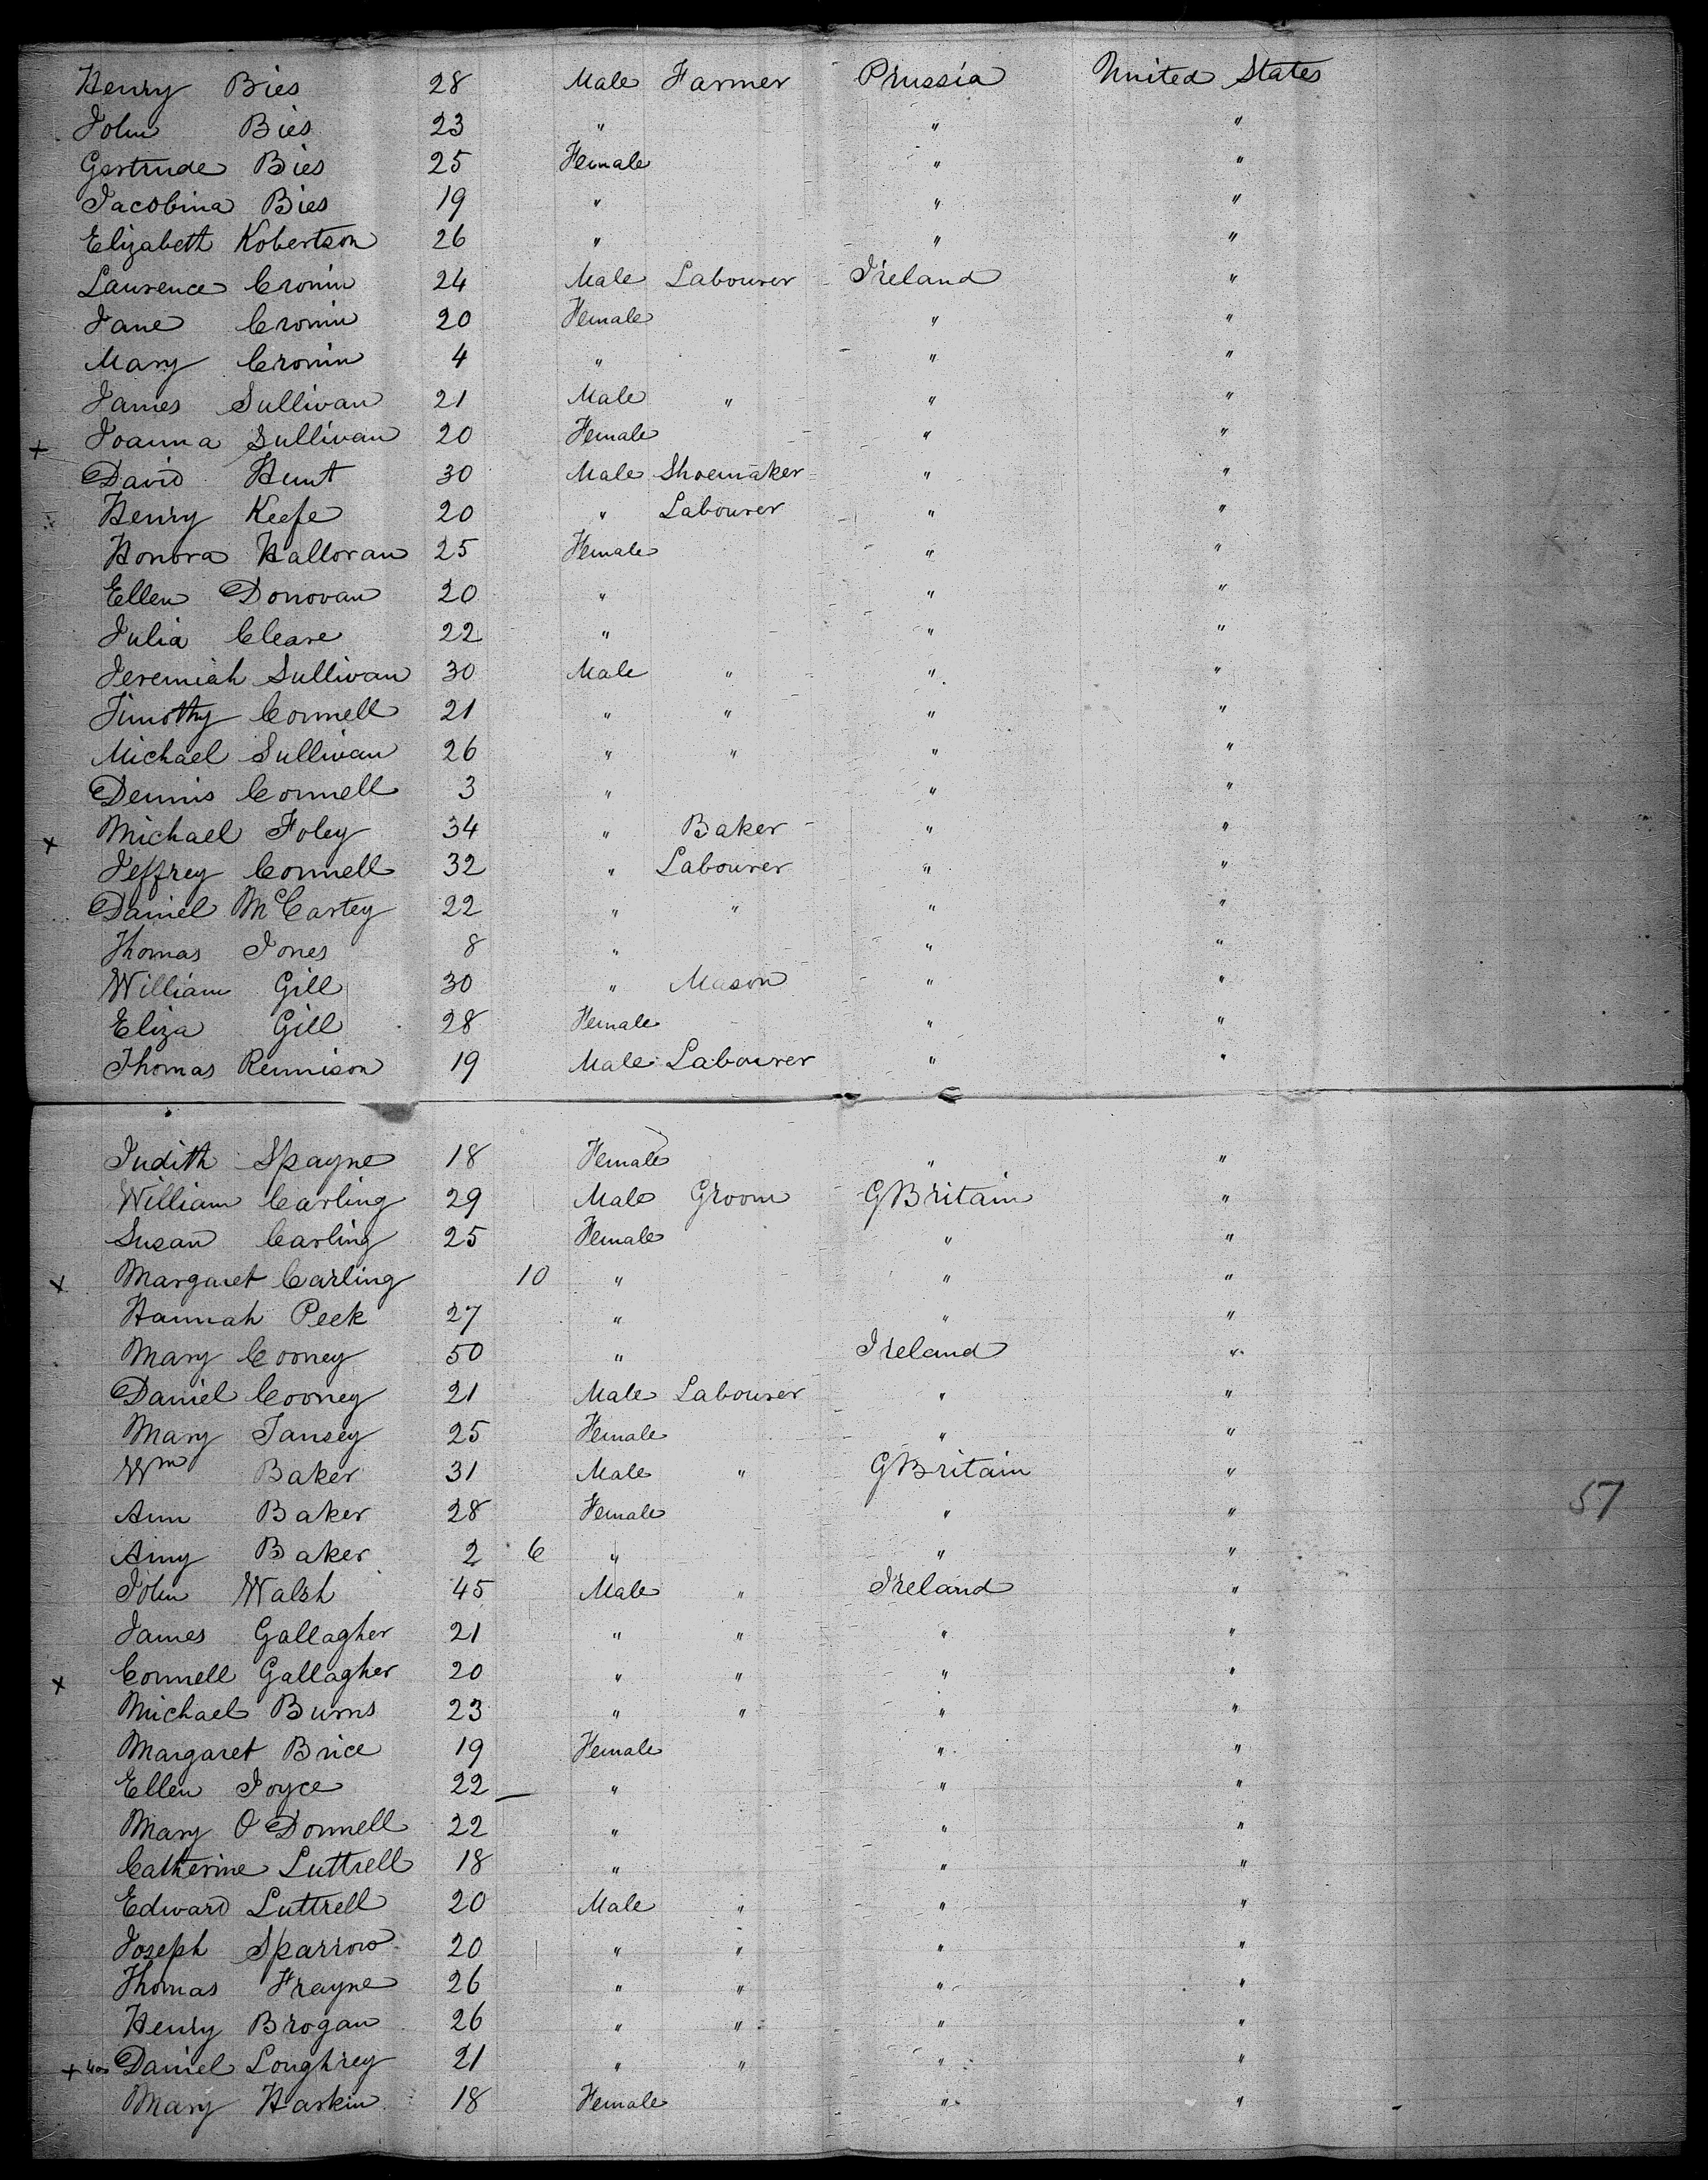 Henry Bies 28 Male Farmer Prussia United States
John Bies 23 " " "
Gertrude Bies 25 Female " "
Jacobina Bies 19 " " "
Elizabeth Robertson 26 " " "
Laurence Cronin 24 Male Labourer Ireland "
Jane Cronin 20 Female " "
Mary Cronin 4 " " "
James Sullivan 21 Male " " "
+ Joanna Sullivan 20 Female " "
David Hunt 30 Male Shoemaker " "
Henry Keefe 20 " Labourer " "
Honora Halloran 25 Female " "
Ellen Donovan 20 " " "
Julia Cleare 22 " " "
Jeremiah Sullivan 30 Male " " "
Timothy Connell 21 " " " "
Michael Sullivan 26 " " " "
Dennis Connell 3 " " "
x Michael Foley 34 " Baker " "
Jeffrey Connell 32 " Labourer " "
Daniel McCartey 22 " " " "
Thomas Jones 8 " " "
William Gill 30 " Mason " "
Eliza Gill 28 Female " "
Thomas Rennison 19 Male Labourer " "
Judith Spayne 18 Female " "
William Carling 29 Male Groom GBritain "
Susan Carling 25 Female " "
x Margaret Carling 10 " " "
Hannah Peek 27 " " "
Mary Cooney 50 " Ireland "
Daniel Cooney 21 Male Labourer " "
Mary Tansey 25 Female " "
Wm Baker 31 Male " GBritain "
Ann Baker 28 Female " " 57
Amy Baker 2 6 " " "
John Walsh 45 Male " Ireland "
James Gallagher 21 " " " "
x Connell Gallagher 20 " " " "
Michael Burns 23 " " " "
Margaret Brice 19 Female " "
Ellen Joyce 22 " " "
Mary O Donnell 22 " " "
Catherine Luttrell 18 " " "
Edward Luttrell 20 Male " " "
Joseph Sparrow 20 " " " "
Thomas Frayne 26 " " " "
Henry Brogan 26 " " " "
+ Daniel Loughrey 21 " " " "
Mary Harkin 18 Female " "